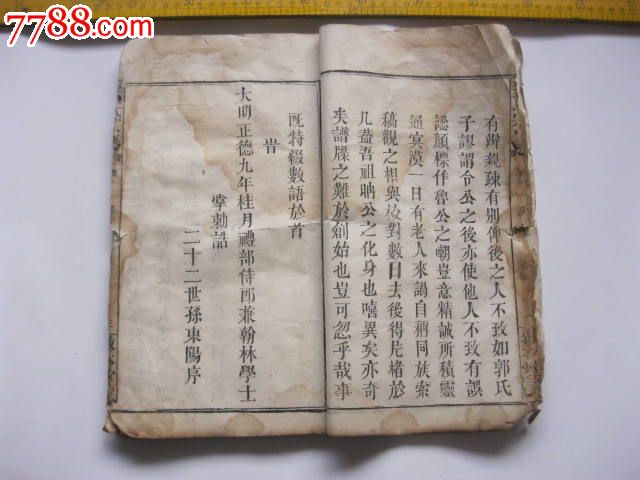 7788.com
有辨親疎有别俾後之人不致如郭氏
子謬謂令公之後亦使他人不致有誤
認顏標作魯公之嘲豈意精誠所積靈
通寞漠一日有老人來謁自稱同族索
稿觀之相與校對數日去後得片楮於
几蓋吾祖昞公之化身也嘻異矣亦奇
矣譜牒之難於創始也豈可忽乎哉事
旣特綴數語於首
旹
大明正德九年桂月禮部侍郎兼翰林學士
掌勅誥
二十二世孫東陽序